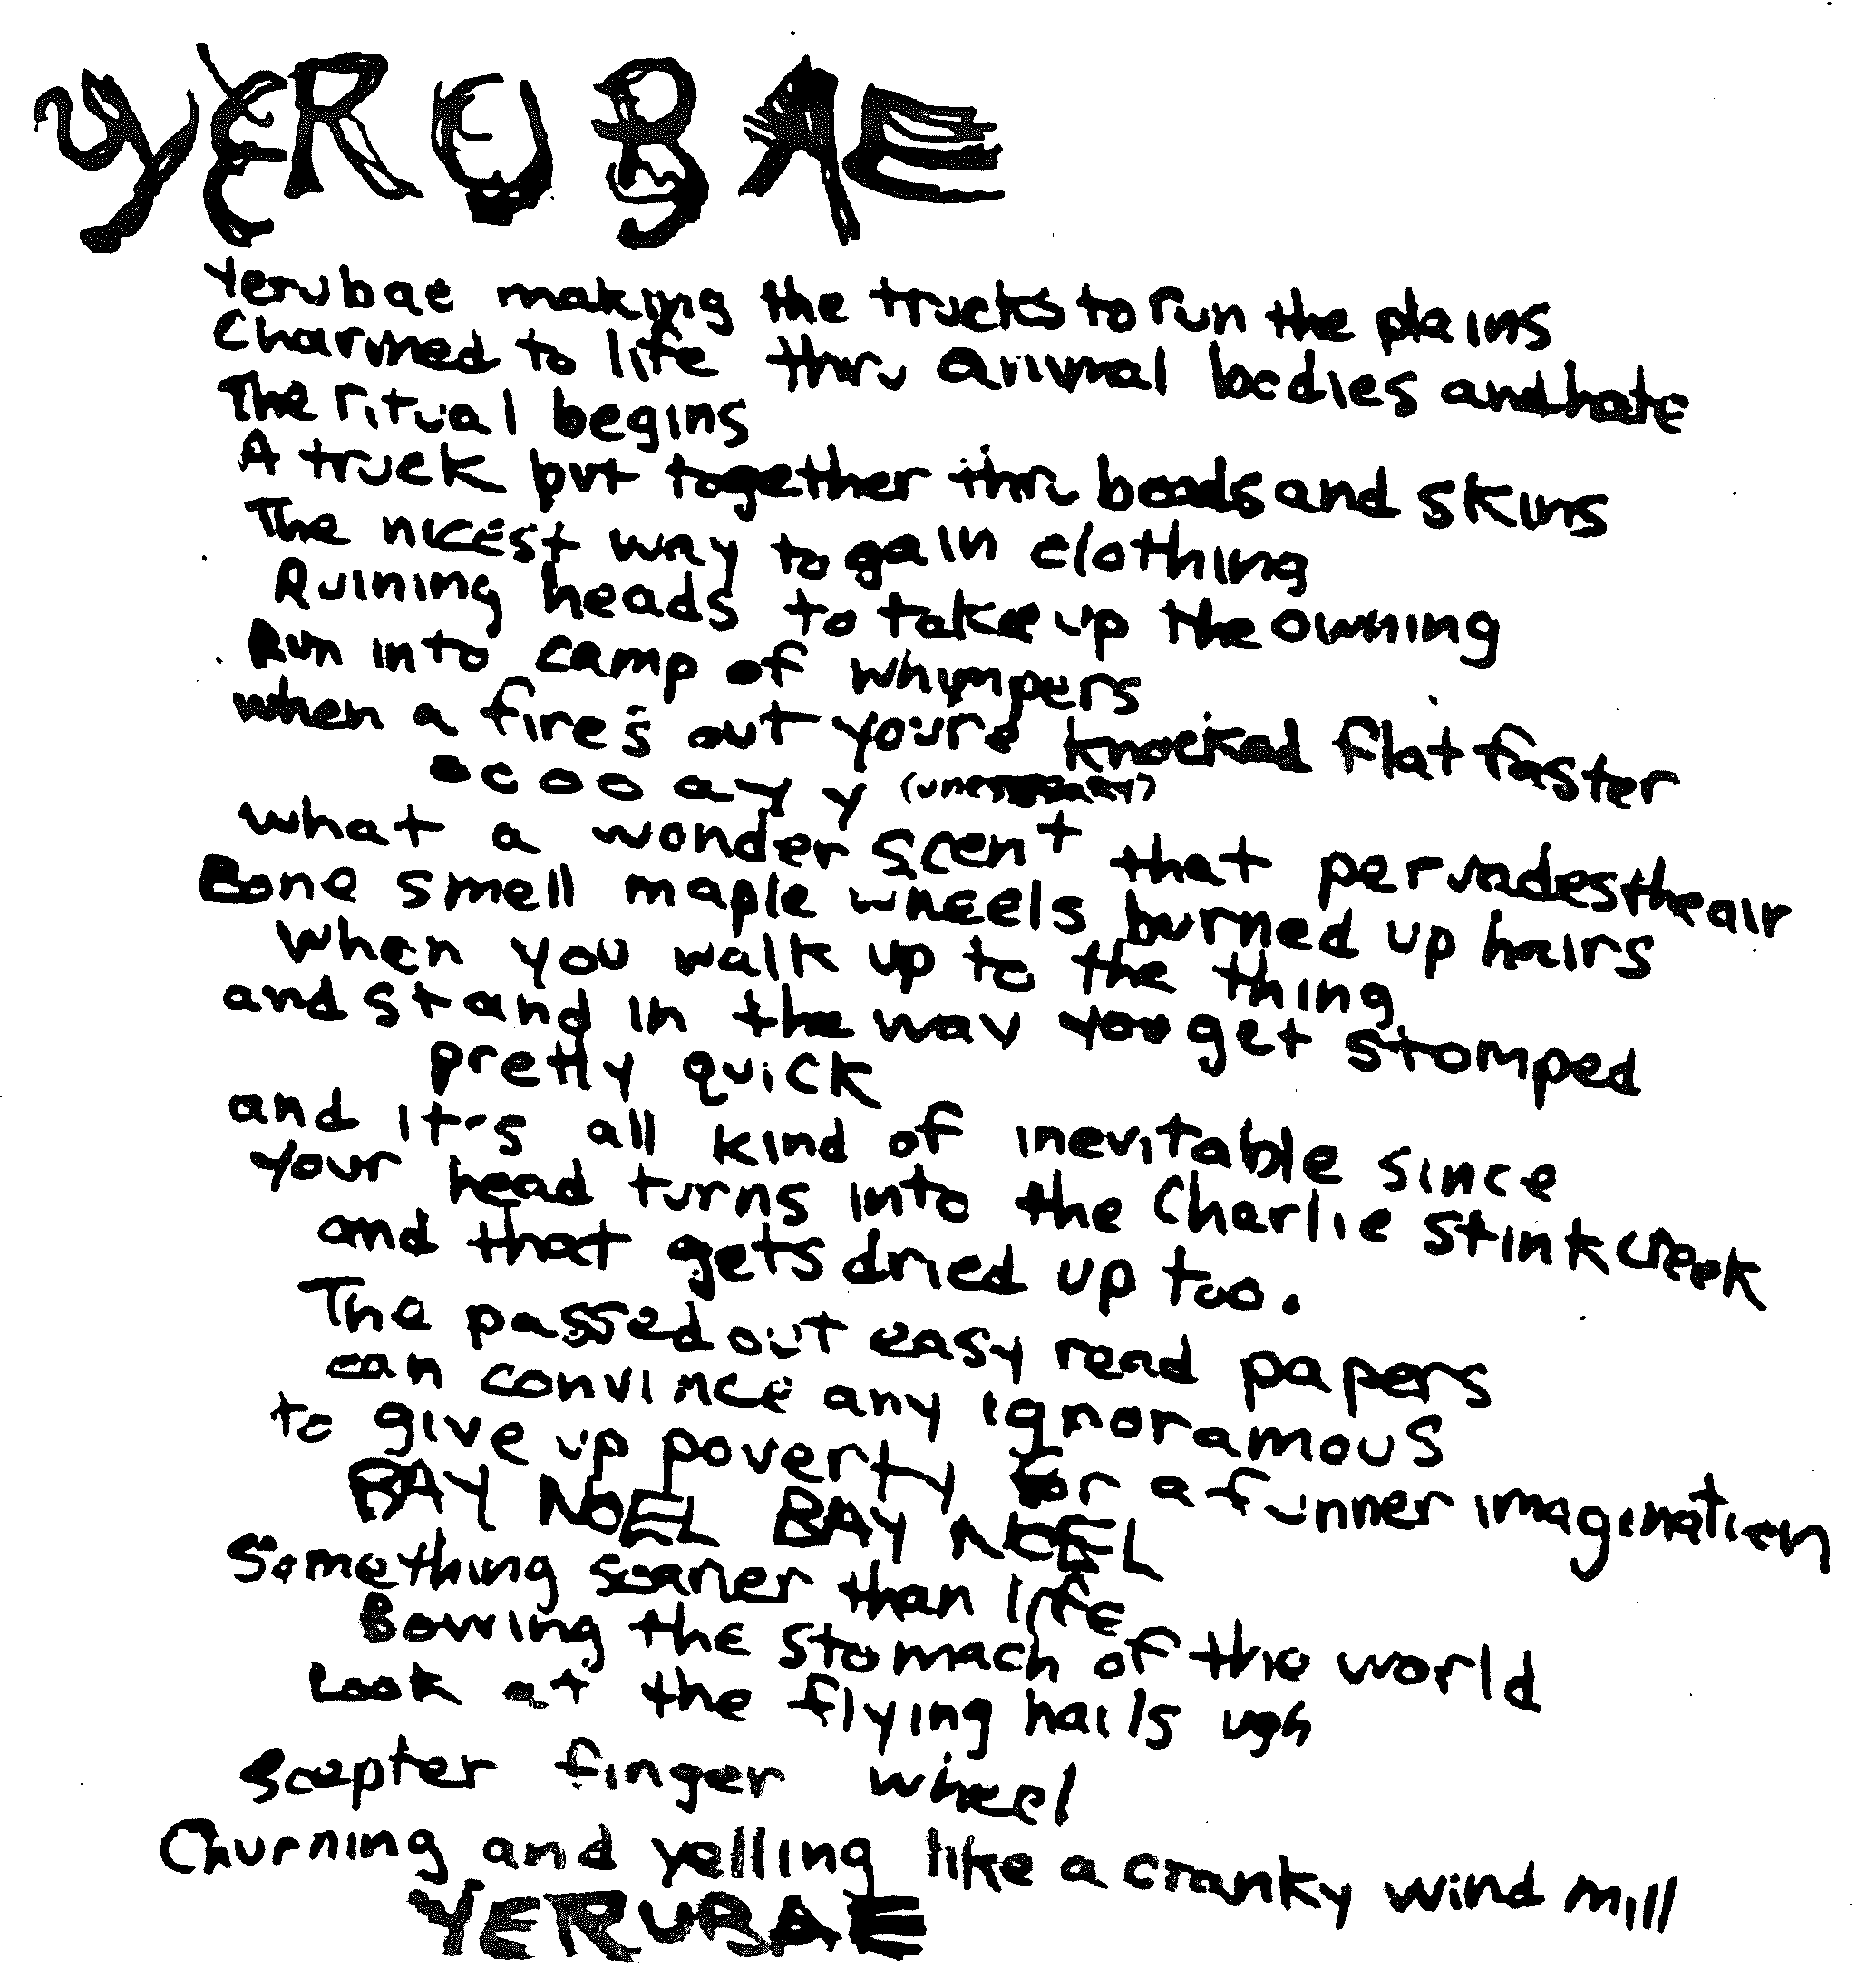 YERUBAE
Yerubae making the trucks to run the plains
Charmed to life thru animal bodies and hate
The ritual begins
A truck put together thru beads and skins
The nicest way to gain clothing
Ruining heads to take up the owning
Run into camp of whympers
when a fire's out you're knocked flat faster
what a wonder scent that pervades the air
Bone smell maple wheels burned up hairs
When you walk up to the thing
and stand in the way you get stomped
pretty quick
and it's all kind of inevitable since
your head turns into the Charlie Stink creek
and that gets dried up too.
The passed out easy read papers
can convince any ignoramous
to give up poverty for a funner imagination
BAY NOEL BAY NOEL
Something scarier than life
the stomach of the world
Look at the flying hails ugh
Scepter finger wheel
Churning and yelling like a cranky wind mill
YERUBAE